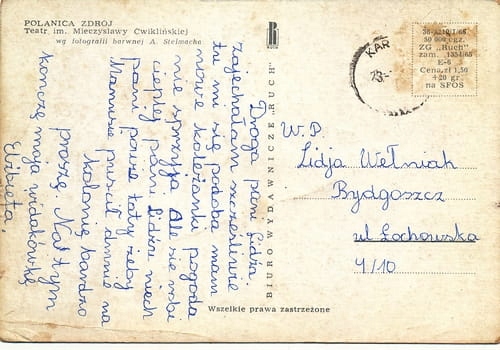 POLANICA ZDRÓJ
Teatr im. Mieczysławy Ćwiklińskiej
wg fotografii barwnej A. Stelmacha
Droga pani Lidzu.
Zajechałam szczęśliwie
tu mi się podoba mam
nowe koleżanki pogoda
nie sprzyja Ale się robi
cieplej pani Lidźu niech
pani powie taty żeby
Mamusie puścił do mnie na
kolonię bardzo
proszę. Na tym
kończę moją widokówkę
Elżbieta.
BIURO WYDAWNICZE „RUCH"
R
KAR
36-A210/I/65
50 000 egz.
ZG „Ruch"
zam. 1354/65
E-6
Cena zł 1,50
+20 gr
na SFOS
W.P.
Lidja Wełniak
Bydgoszcz
ul Łochowska
4/10
Wszelkie prawa zastrzeżone